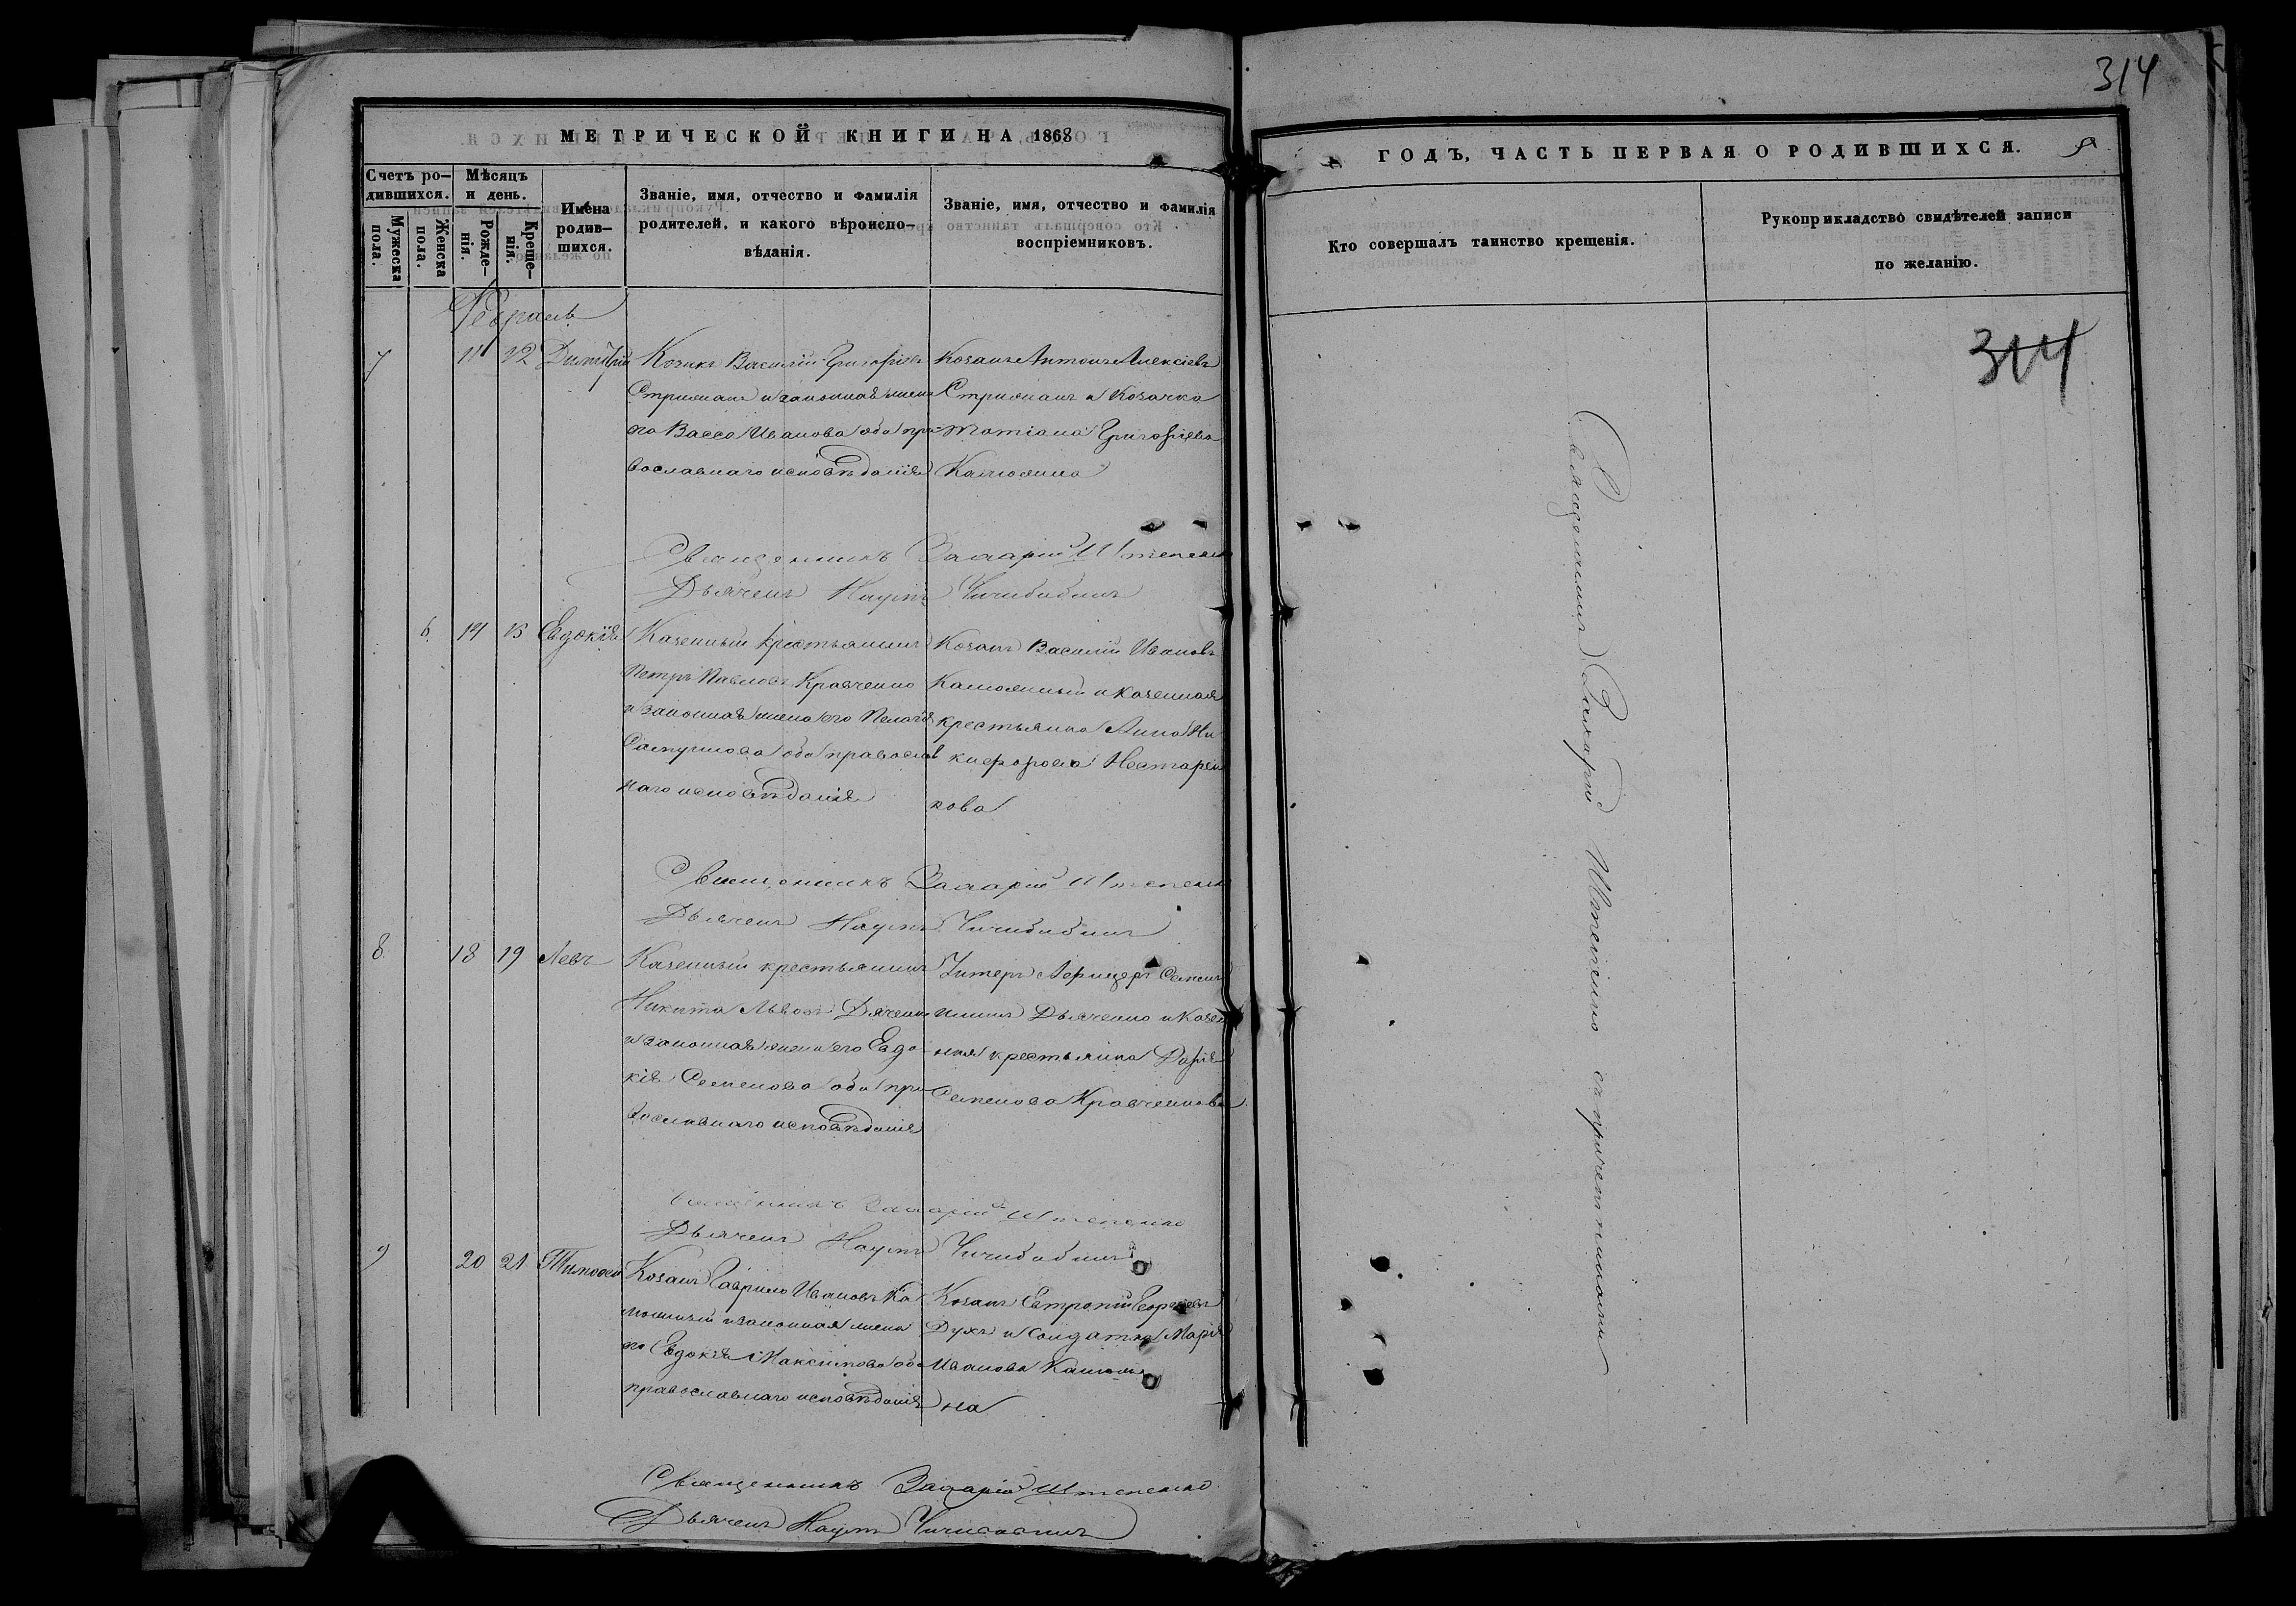 314
МЕТРИЧЕСКОЙ КНИГИ НА 1868
ГОДЪ, ЧАСТЬ ПЕРВАЯ О РОДИВШИХСЯ.
Счетъ ро-
дившихся.
Мужеска
пола.
Женска
пола.
Мѣсяцъ
и день.
Рожде-
нія.
Креще-
нія.
Имена
родив-
шихся.
Званіе, имя, отчество и фамилія
родителей, и какого вѣроиспо-
вѣданія.
Званіе, имя, отчество и фамилія
воспріемниковъ.
Кто совершалъ таинство крещенія.
Рукоприкладство свидѣтелей записи
по желанію.
314
Февраль
7 11 12 Димитрій
Козакъ Василій Григорьевъ
и законная жена
его Васса Иванова оба пра-
вославнаго исповѣданія
Козакъ Антонъ Алексіевъ
и Козачка
Татіана Григорьева
Священникъ Захарій Штепенко
Дьячекъ Наумъ
6 14 15 Евдокія
Казенный крестьянинъ
Петръ Павловъ Кравченко
и законная жена его Пелагія
Самуилова оба православ
наго исповѣданія
Козакъ Василій Ивановъ
и казенная
крестьянка Анна Ни
кифорова Нестерен
кова
Священникъ Захарій Штепенко
Дьячекъ Наумъ
8 18 19 Левъ
Казенный крестьянинъ
Никита Львовъ Дяченко
и законная жена его Евдо-
кія Семенова оба пра
вославнаго исповѣданія
Унтеръ Афицеръ Семенъ
Дьяченко и Казен
ная крестьянка Дарія
Семенова Кравченкова
Священникъ Захарій Штепенко
Дьячекъ Наумъ
9 20 21 Тимофей
Козакъ Гаврило Ивановъ
и законная жена
его Евдокія Максимова оба
православнаго исповѣданія
Козакъ Евтропій Георгіевъ
Духъ и Солдатка Марія
Иванова
на
Священникъ Захарій Штепенко
Дьячекъ Наумъ
Священникъ Захарій Штепенко съ причетниками